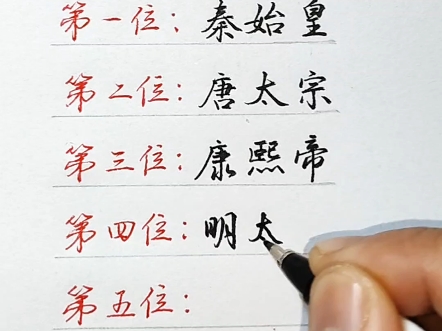 第一位：秦始皇
第二位：唐太宗
第三位：康熙帝
第四位：明太
第五位：